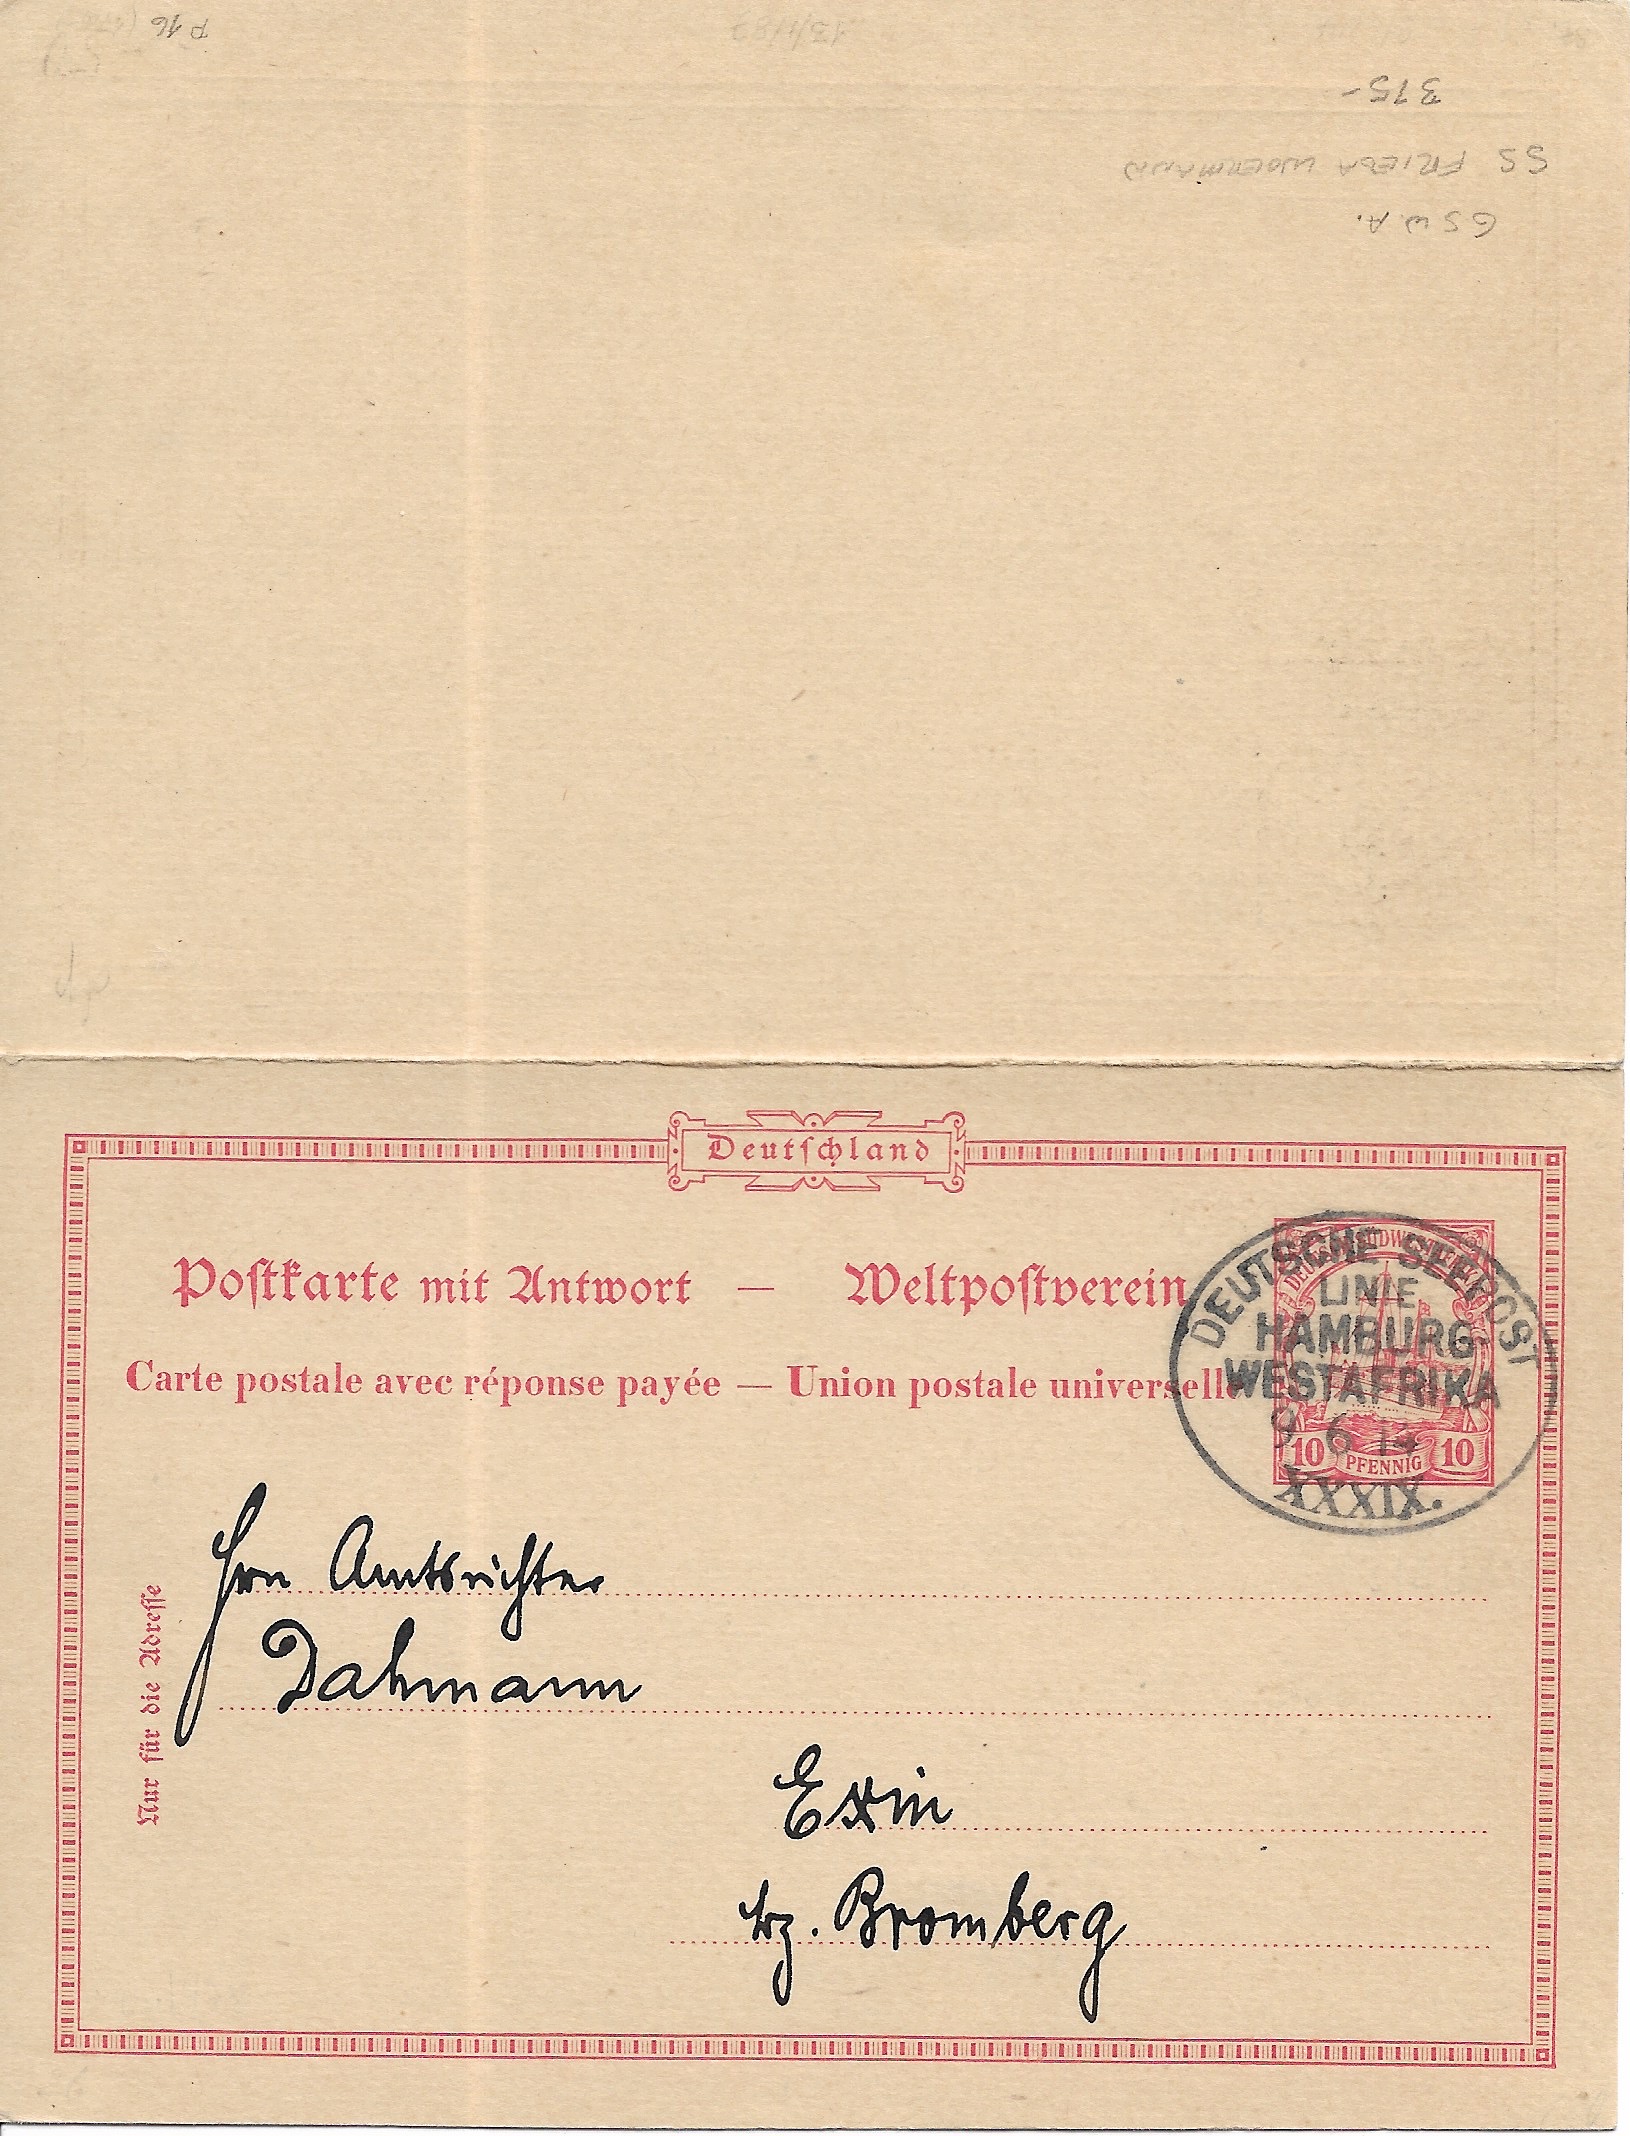 P 16
375-
SS FRIEDA WOERMANN
G S W A.
Deutschland
Postkarte mit Antwort — Weltpostverein
Carte postale avec réponse payée — Union postale universelle
DEUTSCHE SEEPOST
LINIE
HAMBURG
WESTAFRIKA
9 6 14
XXXIX.
10 PFENNIG 10
Hrn Amtsrichter
Dahmann
Exin
bz. Bromberg
Nur für die Adresse